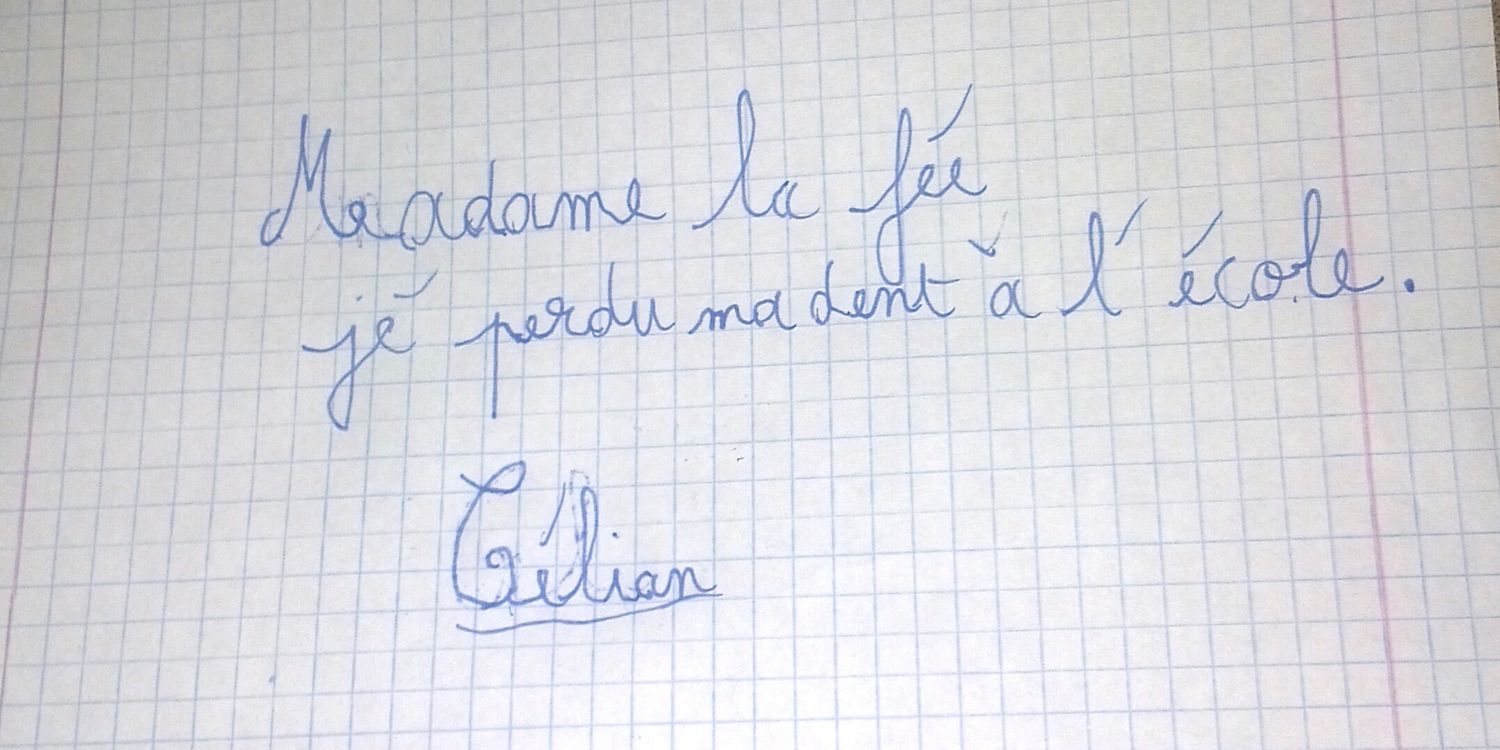 Madame la fée
jé perdu ma dent à l'école.
Caélian